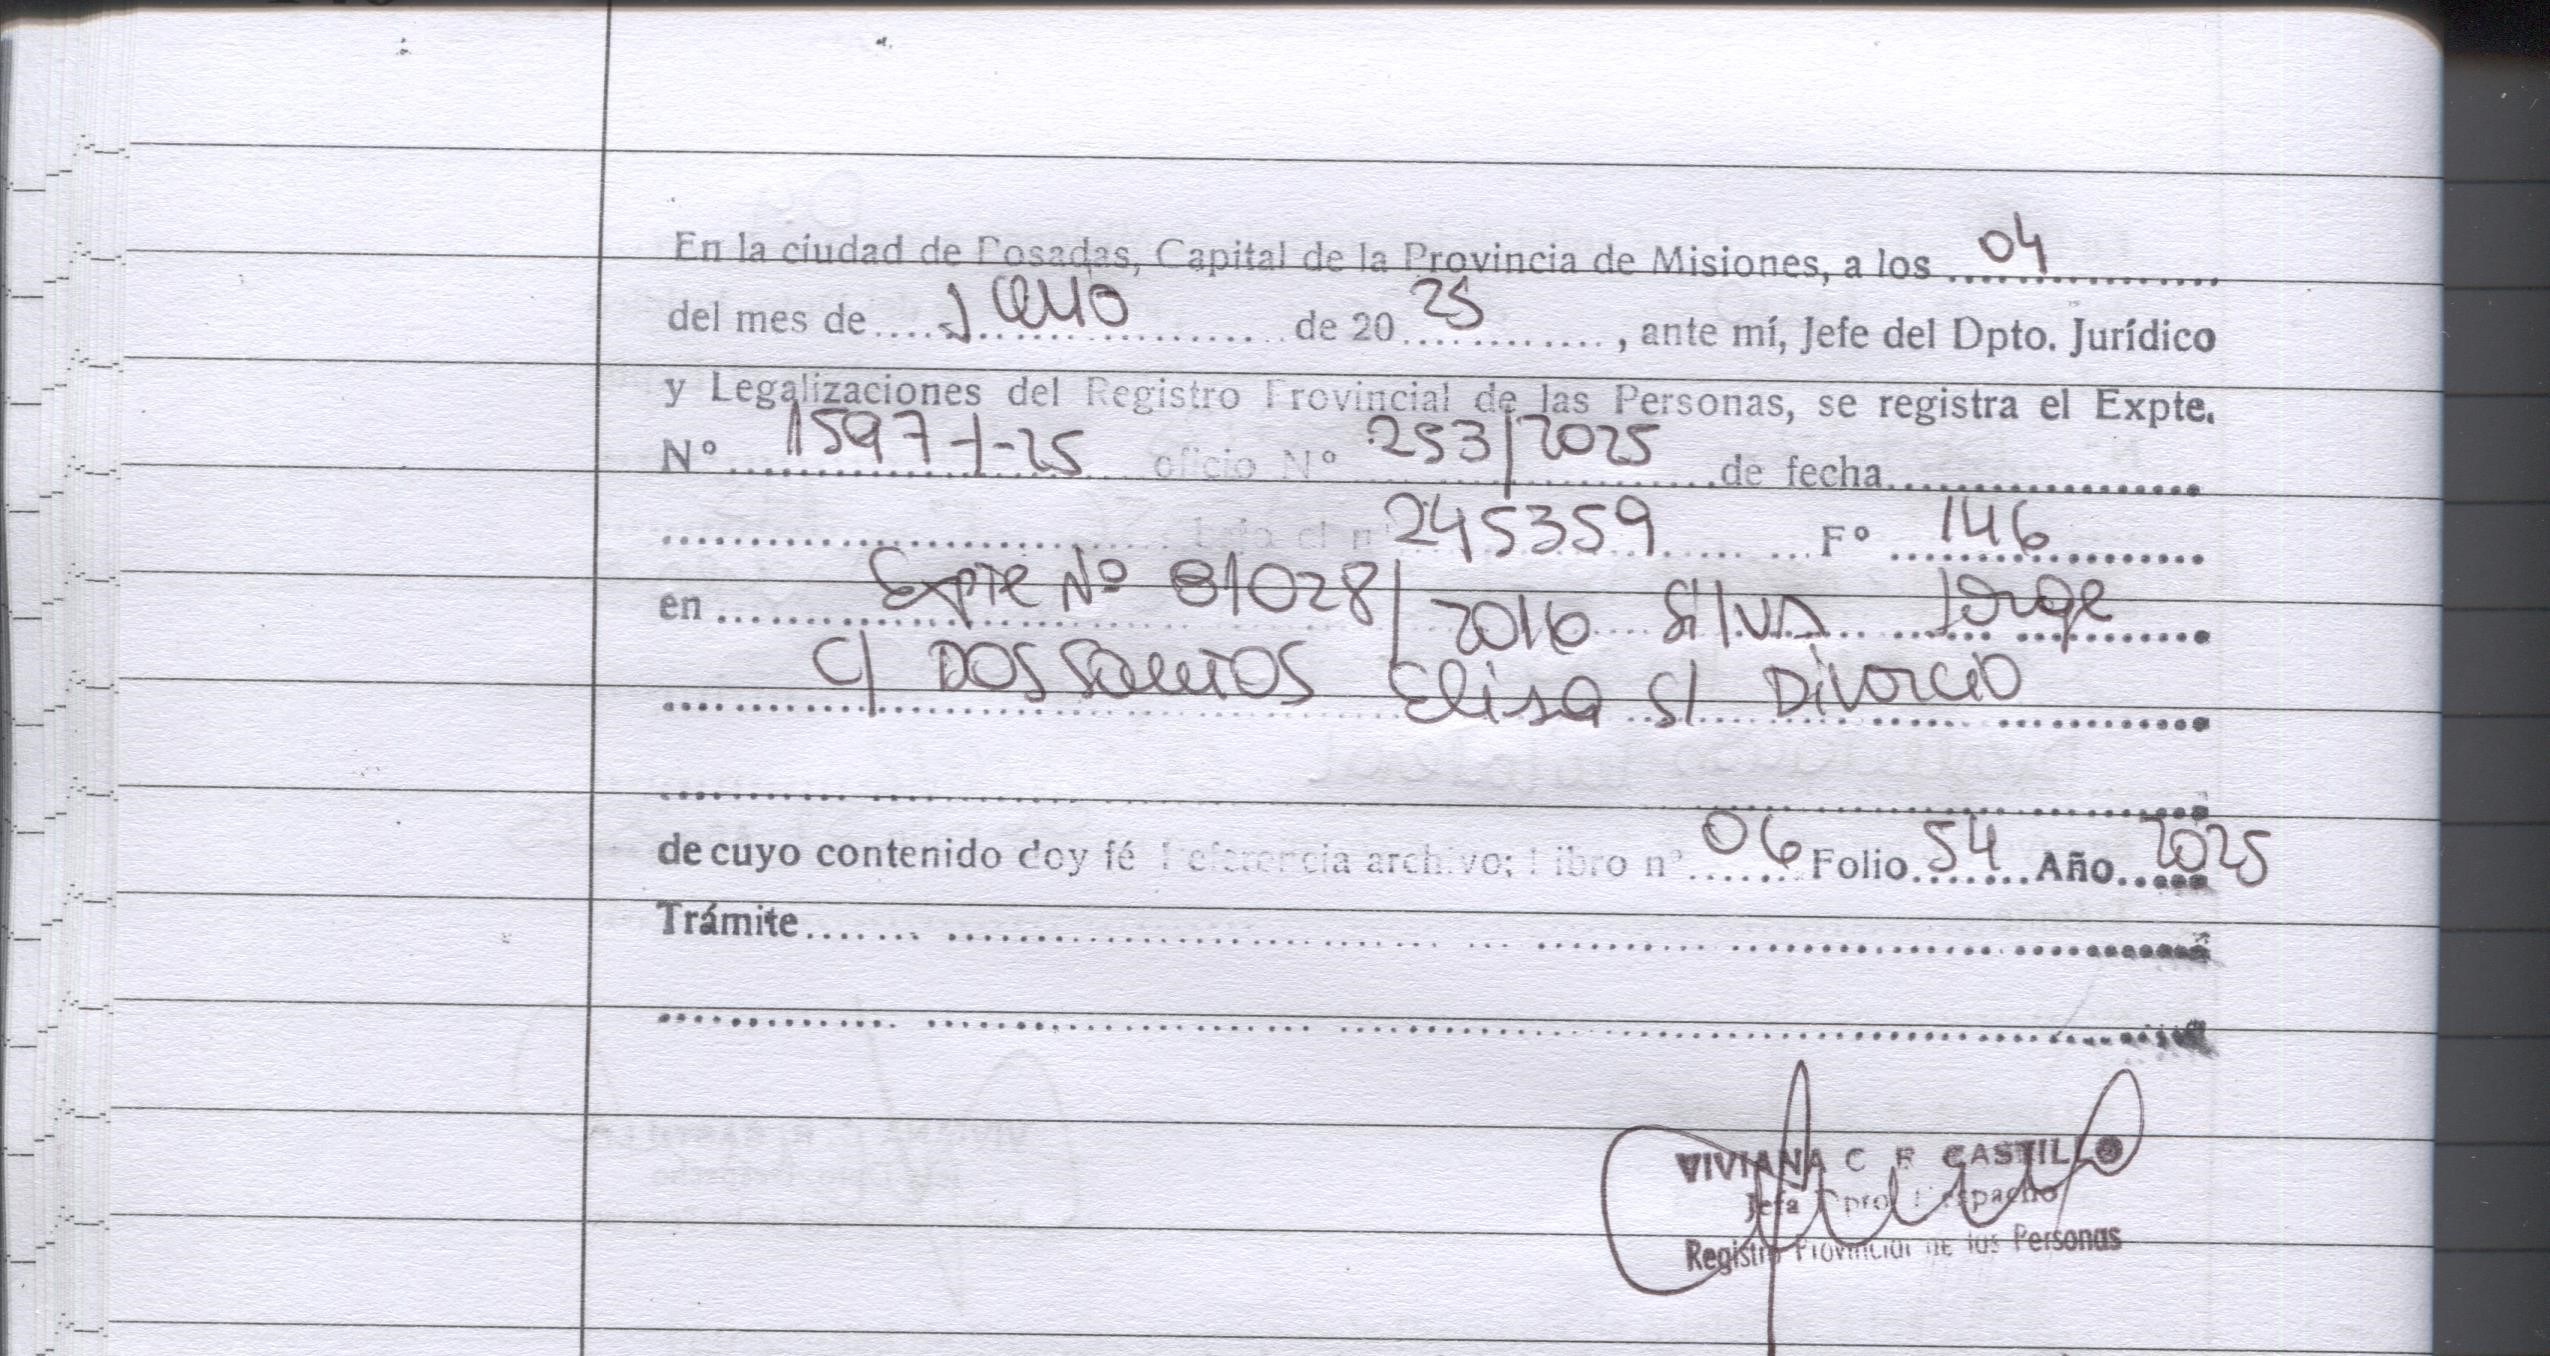 En la ciudad de Posadas, Capital de la Provincia de Misiones, a los 04
del mes de de 20 25, ante mí, Jefe del Dpto. Jurídico
y Legalizaciones del Registro Provincial de las Personas, se registra el Expte.
Nº 1597-J-25 oficio Nº 253/2025 de fecha
bajo el nº 245359 Fº 146
en Expte Nº 81028/2016 Silva Jorge
C/ DOS SANTOS Elisa S/ Divorcio
de cuyo contenido doy fé Referencia archivo: Libro nº 06 Folio 54 Año 2025
Trámite
VIVIANA C R CASTILLO
Jefa Dpto Despacho
Registro Provincial de las Personas